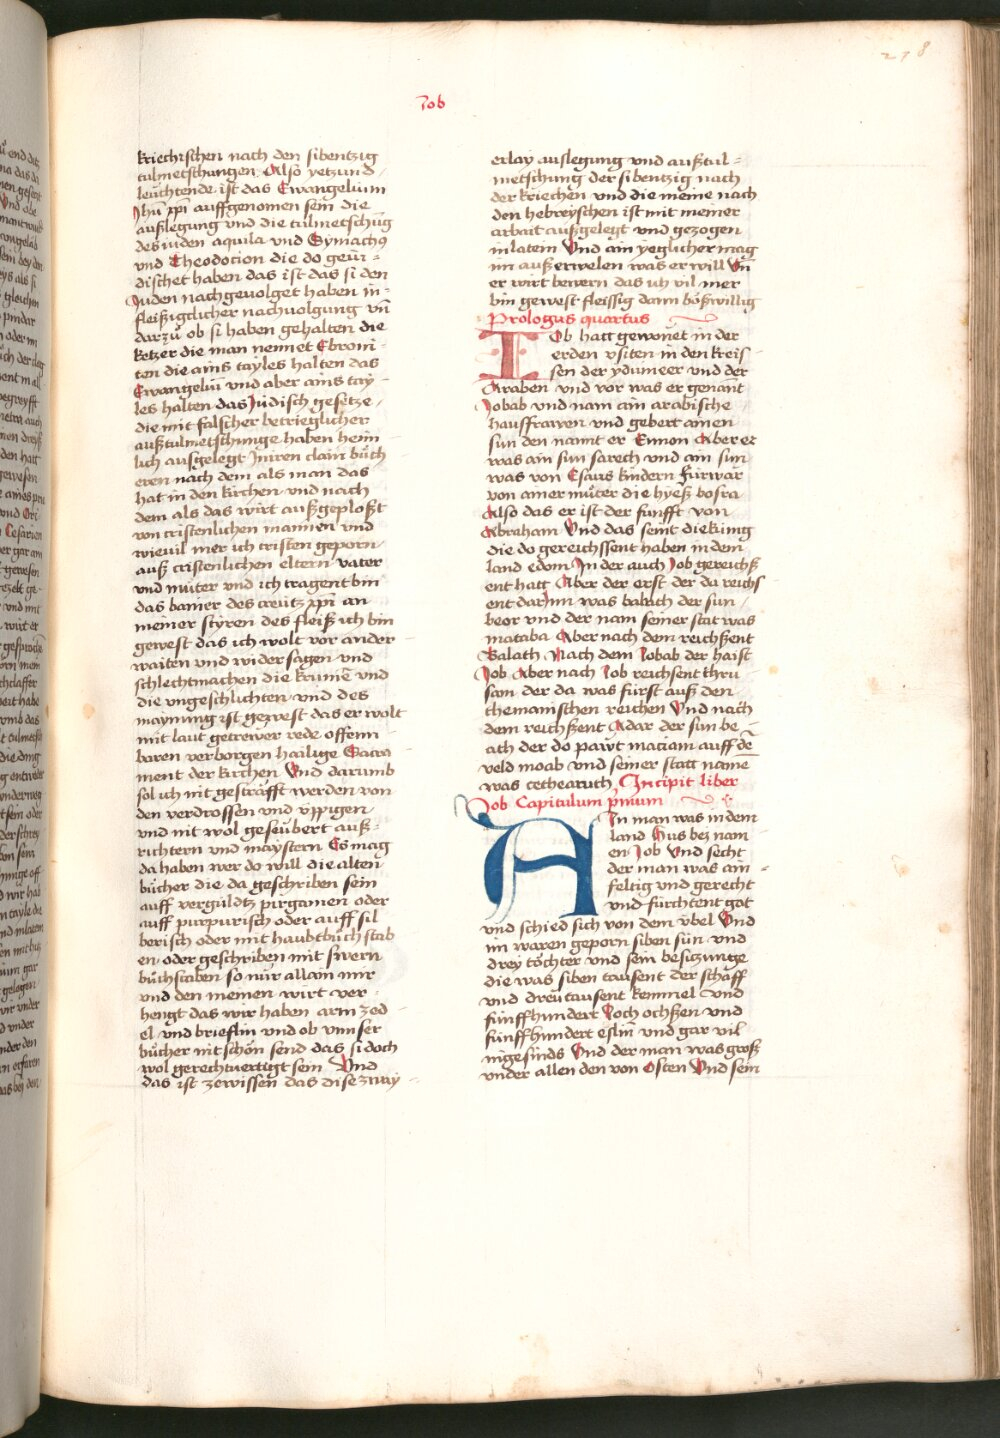 278
Job
kriechischen nach den sibentzig
tulmetschungen Also yetzund
leüchtende ist das Ewangelium
Jhū xp̄i auffgenomen sein die
außlegung vnd die tulmetschūg
des iuden aquila vnd Symachꝰ
vnd Theodocion die do geiu-
dischet haben das ist das si den
Juden nachgeuolget haben in-
fleißigclicher nachuolgung vn̄
darzů ob si haben gehalten die
ketzer die man nennet Ebroni-
ten die ains tayles halten das
Ewangeliū vnd aber ains tay-
les halten das Judisch gesetze
die mit falscher betrieglicher
außtulmetschunge haben heim
lich ausgelegt Jn iren clain bůch
eren nach dem als man das
hat in den kirchen vnd nach
dem als das wirt außgeploßt
von cristenlichen mannen vnd
wieuil mer ich cristen geporn
auß cristenlichen eltern vater
vnd můter vnd ich tragent bin
das banier des creütz xp̄i an
meiner styren des fleiß ich bin
gewest das ich wolt vor ander
waiten vnd wider sagen vnd
schlechtmachen die krumē vnd
die vngeschlichten vnd des
maynung ist gewest das er wolt
mit laut getrewer rede offenn
baren verborgen hailige Sacra
ment der kirchen Vnd darumb
sol ich nit gesträfft werden von
den verdrossen vnd vppigen
vnd nit wol geseubert auß-
richtern vnd maystern Es mag
da haben wer do will die alten
bücher die da geschriben sein
auff vergüldtz pirgamen oder
auff purpurisch oder auff sil
berisch oder mit haubtbůchstab
en oder geschriben mit swern
bůchstaben so nür allain mir
vnd den meinen wirt ver-
hengt das wir haben arm zed
el vnd brieflin vnd ob vnnser
bücher nit schön send das si doch
wol gerechtuertigt sein Vnd
das ist zewissen das dise zway
erlay auslegung vnd außtul-
metschung der sibentzig nach
der kriechen vnd die meine nach
den hebreyschen ist mit meiner
arbait außgelegt vnd gezogen
in latein Vnd ain yeglicher mag
im außerwelen was er will Vn̄
er wirt bewern das ich vil mer
bin gewest fleissig dann bößwillig
Prologus quartus
IOb hatt gewonet in der
erden vsiten in den kreis-
sen der ydumeer vnd der
Araben vnd vor was er genant
Jobab vnd nam ain arabische
hausfrawen vnd gebert ainen
sun den nannt er Ennon Aber er
was ain sun sarech vnd ain sun
was von Esaus kindern fürwar
von ainer můter die hyeß bosra
Also das er ist der funfft von
Abraham Vnd das seint die künig
die do gereichssent haben in dem
land edom Jn der auch Job gereichß
ent hatt Aber der erst der da reichs
ent darJnn was balach der sun
beor vnd der nam seiner stat was
mataba Aber nach dem reichßent
Balath Nach dem Jobab der haist
Job Aber nach Job reichsent thru
sam der da was fürst auß den
themanischen reichen Vnd nach
dem reichßent Adar der sun be
ath der do pawt madiam auff dē
veld moab vnd seiner statt name
was cethearuch Incipit liber
Job Capitulum pͥmum
AIn man was in dem
land Hus bei nam
en Job Vnd secht
der man was ain-
feltig vnd gerecht
vnd fürchtent got
vnd schied sich von dem vbel Vnd
im waren geporn siben sün vnd
drey töchter vnd sein besitzunge
die was siben tausent der schaff
vnd dreu tausent kemmel vnd
fünffhundert Joch ochßen vnd
fünffhundert eslin vnd gar vil
ingesinds Vnd der man was groß
vnder allen den von Osten Vnd sein